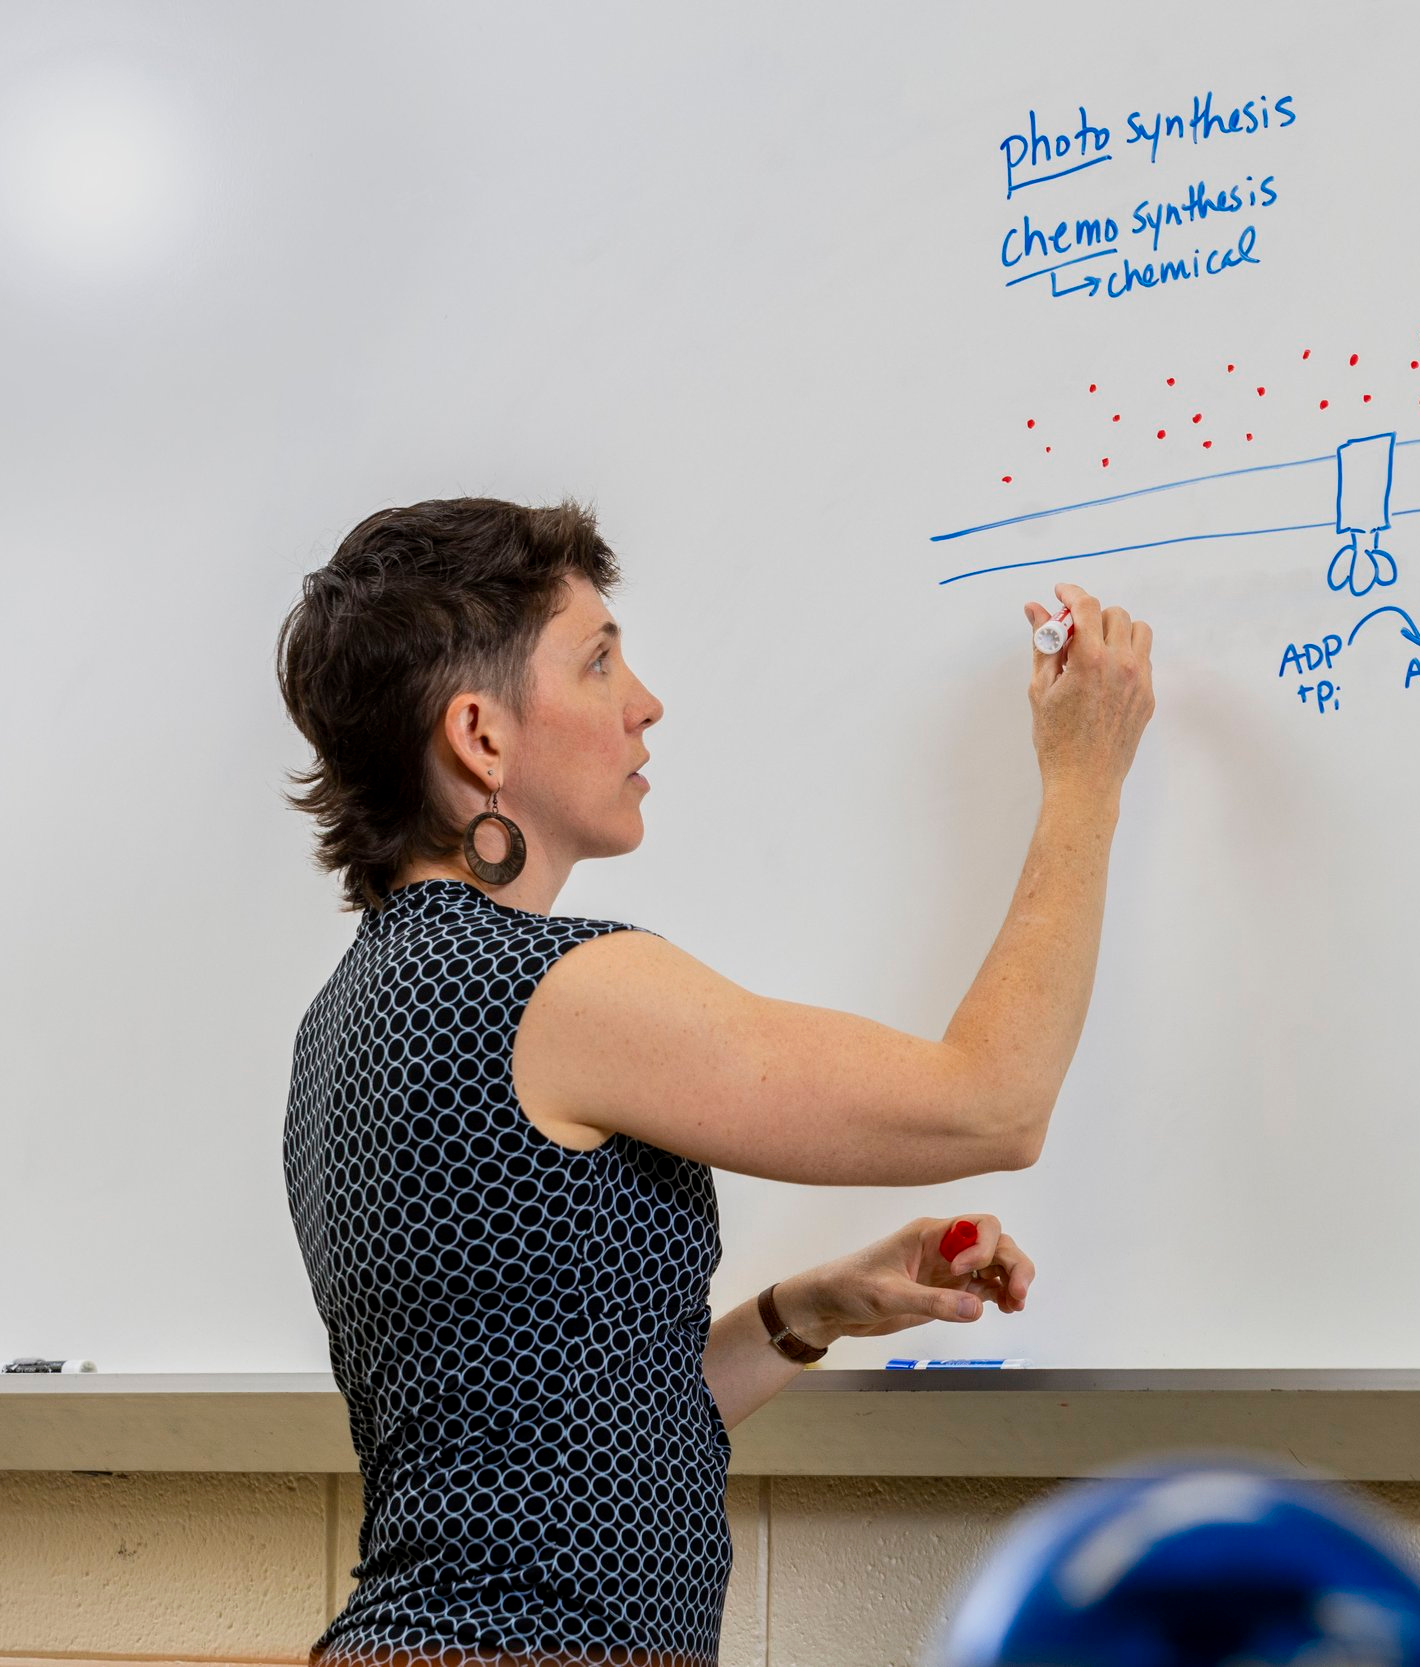 photo synthesis
chemo synthesis
↳ chemical
ADP
+Pi